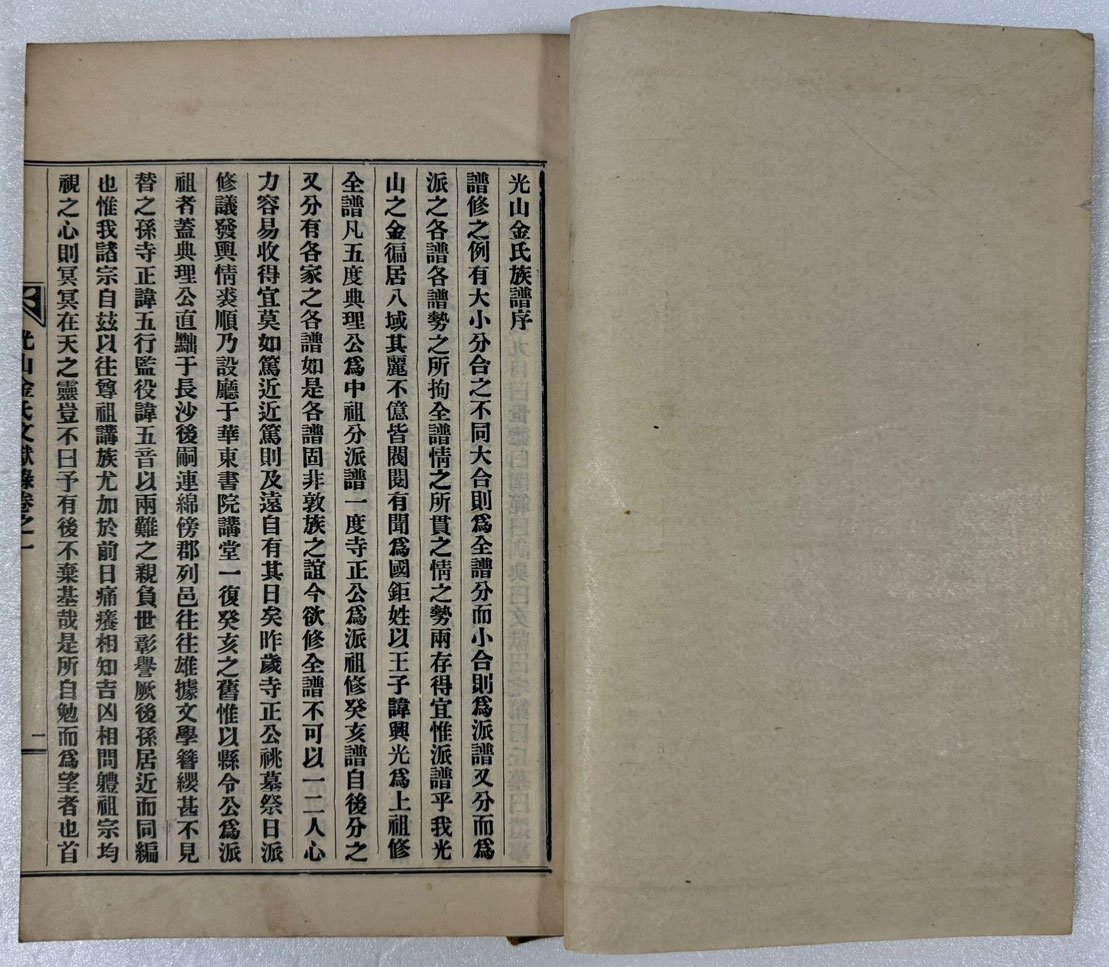 光山金氏族譜序
譜修之例有大小分合之不同大合則爲全譜分而小合則爲派譜又分而爲
派之各譜各譜勢之所拘全譜情之所貫之情之勢兩存得宜惟派譜乎我光
山之金徧居八域其麗不億皆閥閱有聞爲國鉅姓以王子諱興光爲上祖修
全譜凡五度典理公爲中祖分派譜一度寺正公爲派祖修癸亥譜自後分之
又分有各家之各譜如是各譜固非敦族之誼今欲修全譜不可以一二人心
力容易收得宜莫如篤近近篤則及遠自有其日矣昨歲寺正公祧墓祭日派
修議發輿情裘順乃設廳于華東書院講堂一復癸亥之舊惟以縣令公爲派
祖者蓋典理公直黜于長沙後嗣連綿傍郡列邑往往雄據文學簪纓甚不見
替之孫寺正諱五行監役諱五音以兩難之親負世彰譽厥後孫居近而同編
也惟我諸宗自玆以往尊祖講族尤加於前日痛癢相知吉凶相問軆祖宗均
視之心則冥冥在天之靈豈不曰予有後不棄基哉是所自勉而爲望者也首
光山金氏文獻錄卷之一
一